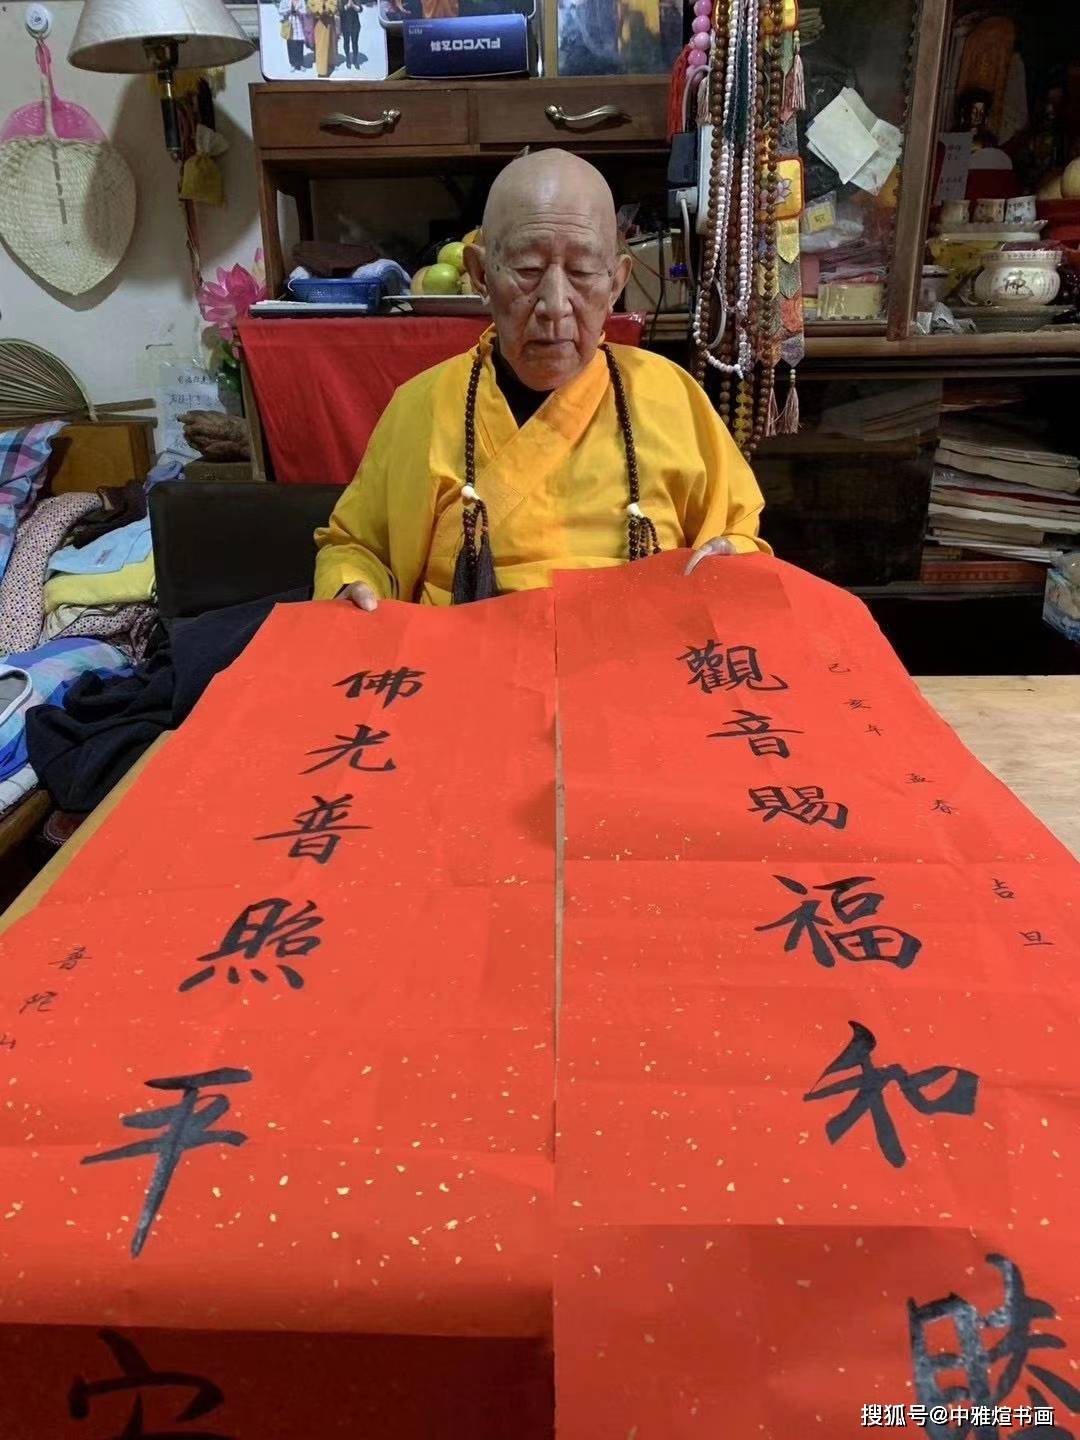 FLYCO飞科
己亥年 孟春 吉旦
觀音賜福和睦
佛光普照平安
普陀山
佛
搜狐号@中雅煊书画